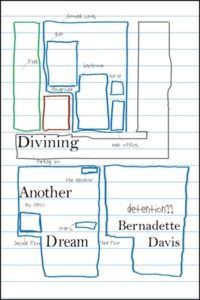 Ground Level
gym
Field
lunchroom
nurse
playground
main office
Divining
Parking lot
the elevator
Another
my class
detention??
Bernadette
stairs
Second Floor
Dream
Third Floor
Davis